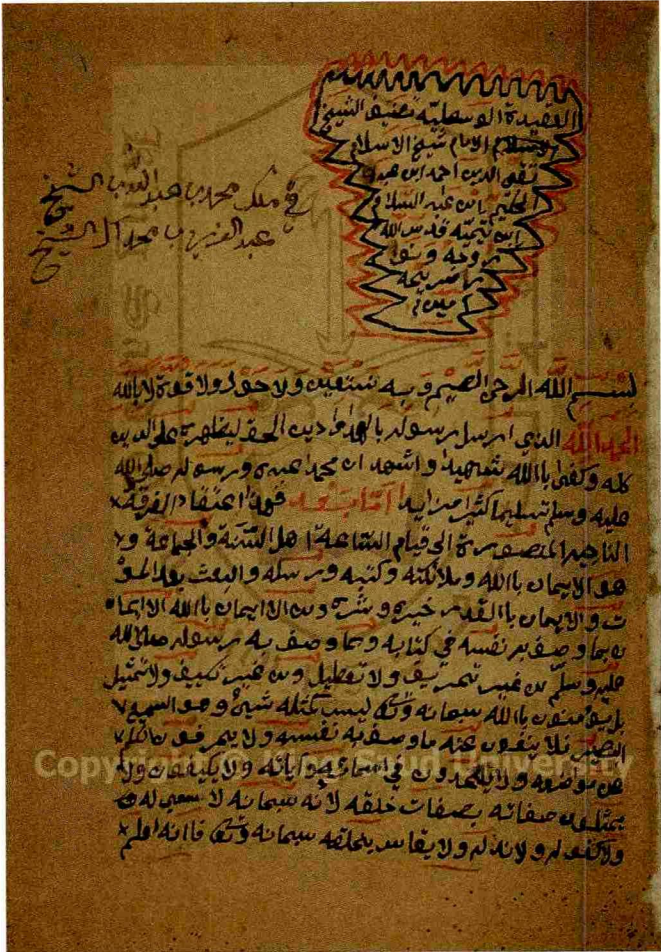 العقيدة الوسطية تصنيف الشيخ
الاسلام الامام شيخ الاسلام
تقي الدين احمد ابن عبد
الحليم بن عبد السلام
ابن تيمية قدس الله
روحه ونور
ضريحه
امين
في ملك محمد بن عبد اللطيف الشيخ
عبد العزيز بن محمد آل الشيخ
بسم الله الرحمن الرحيم وبه نستعين ولا حول ولا قوة الا بالله
الحمد الله الذي ارسل رسوله بالهدى ودين الحق ليظهره على الدين
كله وكفى باالله شهيدا واشهد ان محمدا عبده ورسوله صلى الله
عليه وسلم تسليما كثيرا مزايدا اما بعد فهذا اعتقاد الفرقة
الناجيه المنصوره الى قيام الساعة اهل السنة والجماعة و
هو الايمان باالله وملائكته وكتبه ورسله والبعث بعد المو
ت والايمان باالقدر خيره وشره ومن الايمان باالله الايما
ن بما وصف به نفسه في كتابه وبما وصف به رسوله صلى الله
عليه وسلم من غير تحريف ولا تعطيل ومن غير تكييف ولا تمثيل
بل يؤمنون باالله سبحانه وتعالى ليس كمثله شيئ وهو السميع
البصير فلا ينفون عنه ما وصف به نفسه ولا يحرفون الكلم
عن مواضعه ولا يلحدون في اسمائه واياته ولا يكيفون ولا
يمثلون صفاته بصفات خلقه لانه سبحانه لا سمي له
ولا كفو له ولا ند له ولا يقاس بخلقه سبحانه وتعالى فاانه اعلم
Copyright © King Saud University